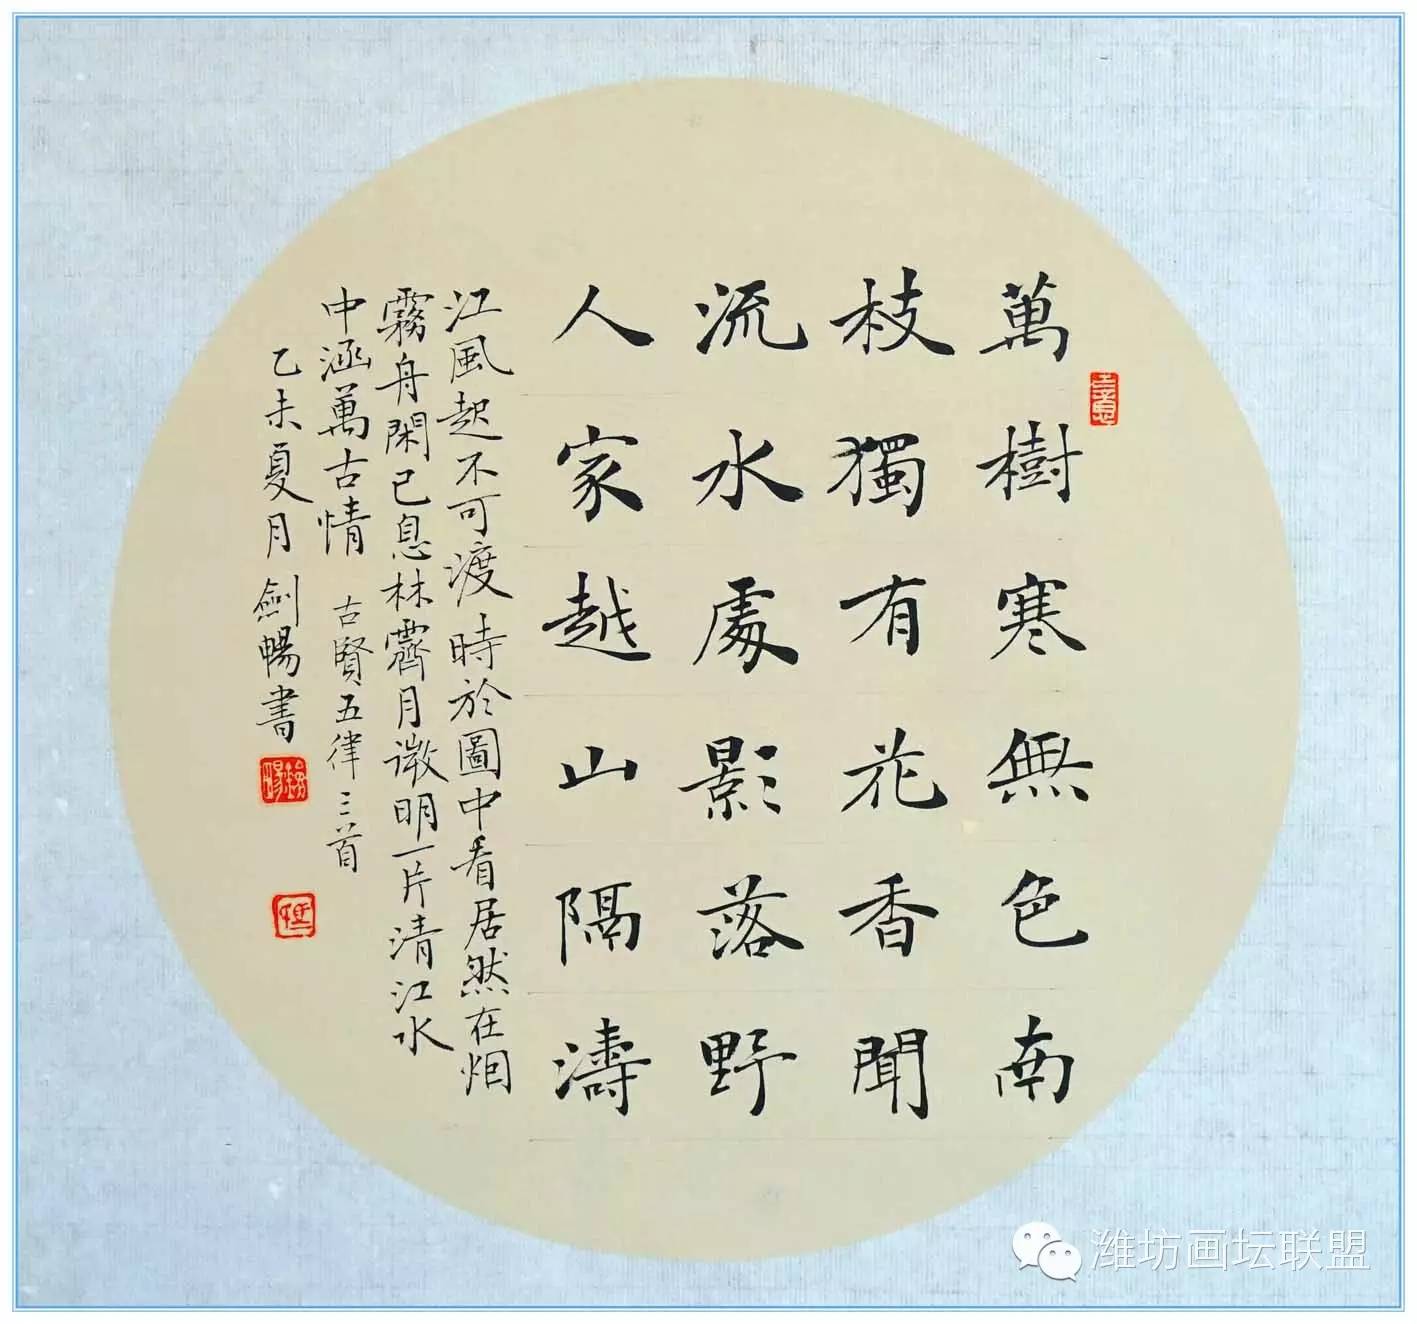 萬樹寒無色南
枝獨有花香聞
流水處影落野
人家越山隔濤
江風起不可渡時於圖中看居然在烟
霧舟閑已息林霽月澂明一片清江水
中涵萬古情 古賢五律三首
乙未夏月劍暢書
潍坊画坛联盟